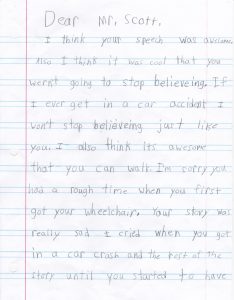 Dear Mr. Scott,
I think your speech was awesome.
Also I think it was cool that you
wernt going to stop believeing. If
I ever get in a car accident I
won't stop believeing just like
you. I also think its awesome
that you can walk. I'm sorry you
had a rough time when you first
got your wheelchair. Your story was
really sad I cried when you got
in a car crash and the rest of the
story until you started to have